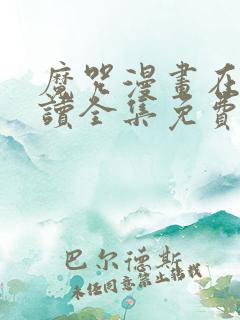 魔咒漫畫在
讀全集免費
巴尔德斯
未经同意禁止转载